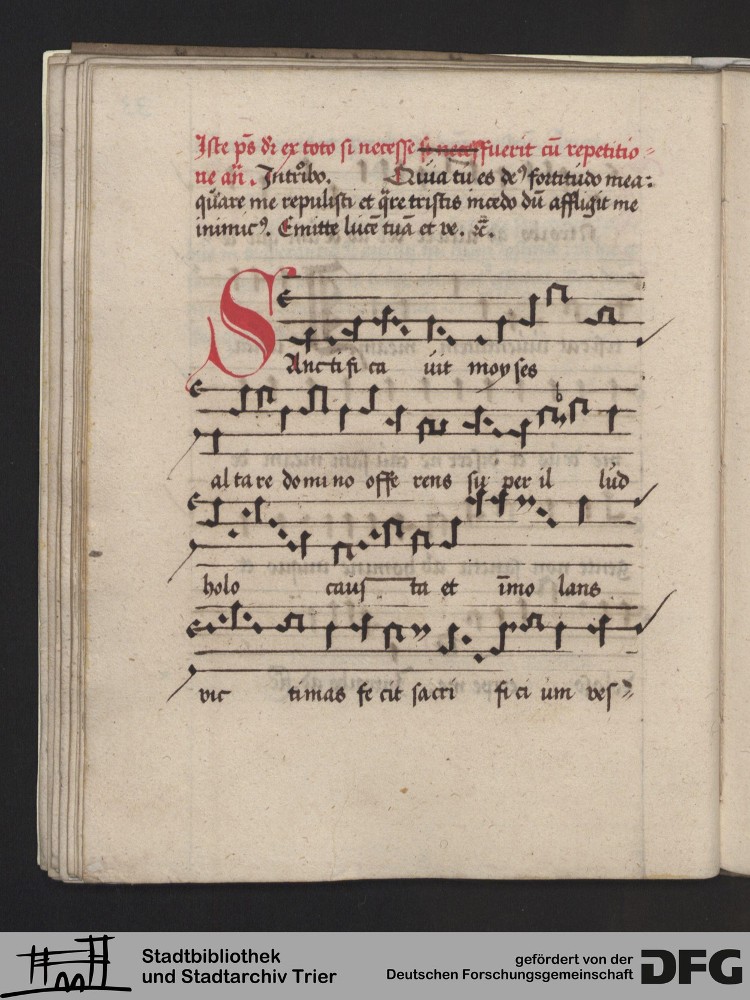 Iste ps̄ dr̄ ex toto si necesse si necess fuerit cū repetitio⸗
ne an̄. Introibo. Quia tu es deꝰ fortitudo mea:
quare me repulisti et q̄re tristis incedo dū affligit me
inimicꝰ. Emitte lucē tuā et ve. ⁊c̄.
SAnctifi ca uit moyses
al ta re domi no offe rens su per il lud
holo caus ta et īmo lans
vic timas fe cit sacri fi ci um ves⸗
Stadtbibliothek
und Stadtarchiv Trier
gefördert von der
Deutschen Forschungsgemeinschaft
DFG